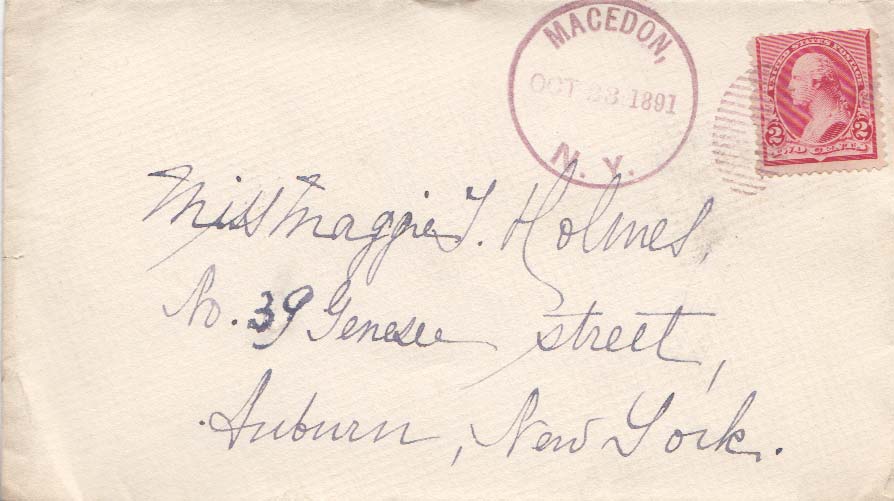 MACEDON,
OCT 1891
N. Y.
UNITED STATES POSTAGE
2 2
TWO CENTS
Miss Maggie T. Holmes,
No. 39 Genesee Street,
Auburn, New York.